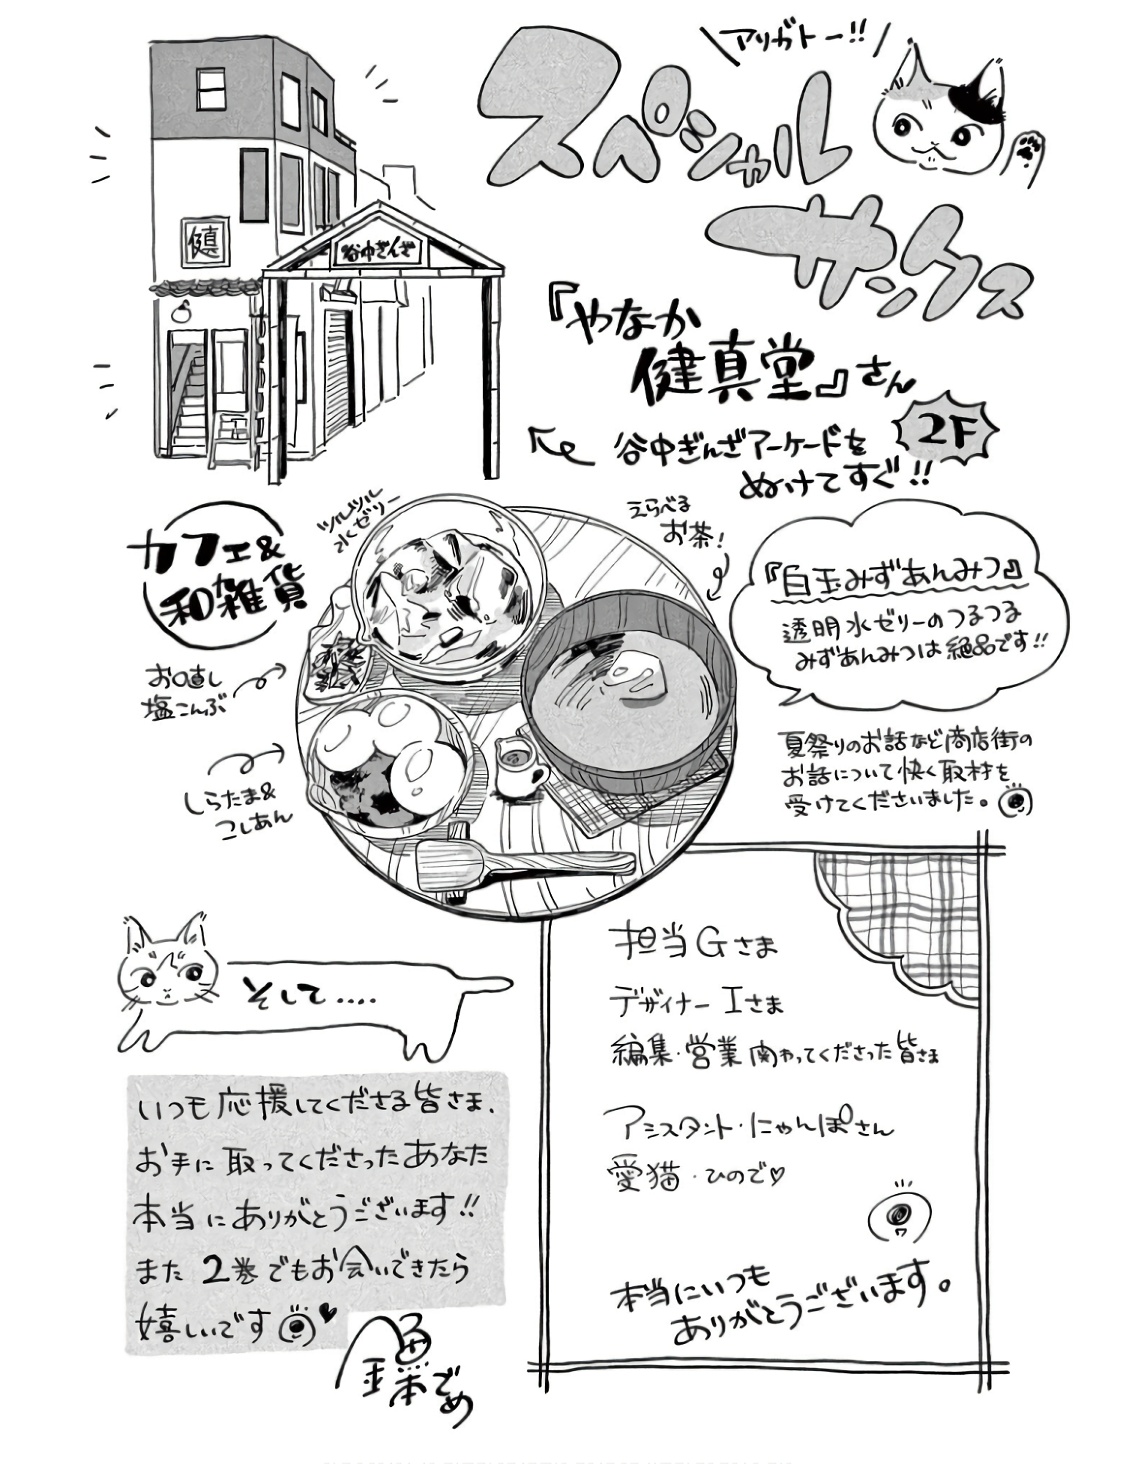 アリガトー!!
スペシャル
サンクス
健真
谷中ぎんざ
『やなか
健真堂』さん
2F
谷中ぎんざアーケードを
ぬけてすぐ!!
カフェ&
和雑貨
ツルツル
水ゼリー
えらべる
お茶!
『白玉みずあんみつ』
透明水ゼリーのつるつる
みずあんみつは絶品です!!
お口直し
塩こんぶ
しらたま&
こしあん
夏祭りのお話など商店街の
お話について快く取材を
受けてくださいました。
担当Gさま
デザイナー Iさま
編集・営業 関わってくださった皆さま
アシスタント・にゃんぽさん
愛猫・ひので♡
本当にいつも
ありがとうございます。
そして....
いつも応援してくださる皆さま、
お手に取ってくださったあなた
本当にありがとうございます!!
また2巻でもお会いできたら
嬉しいです
でめ